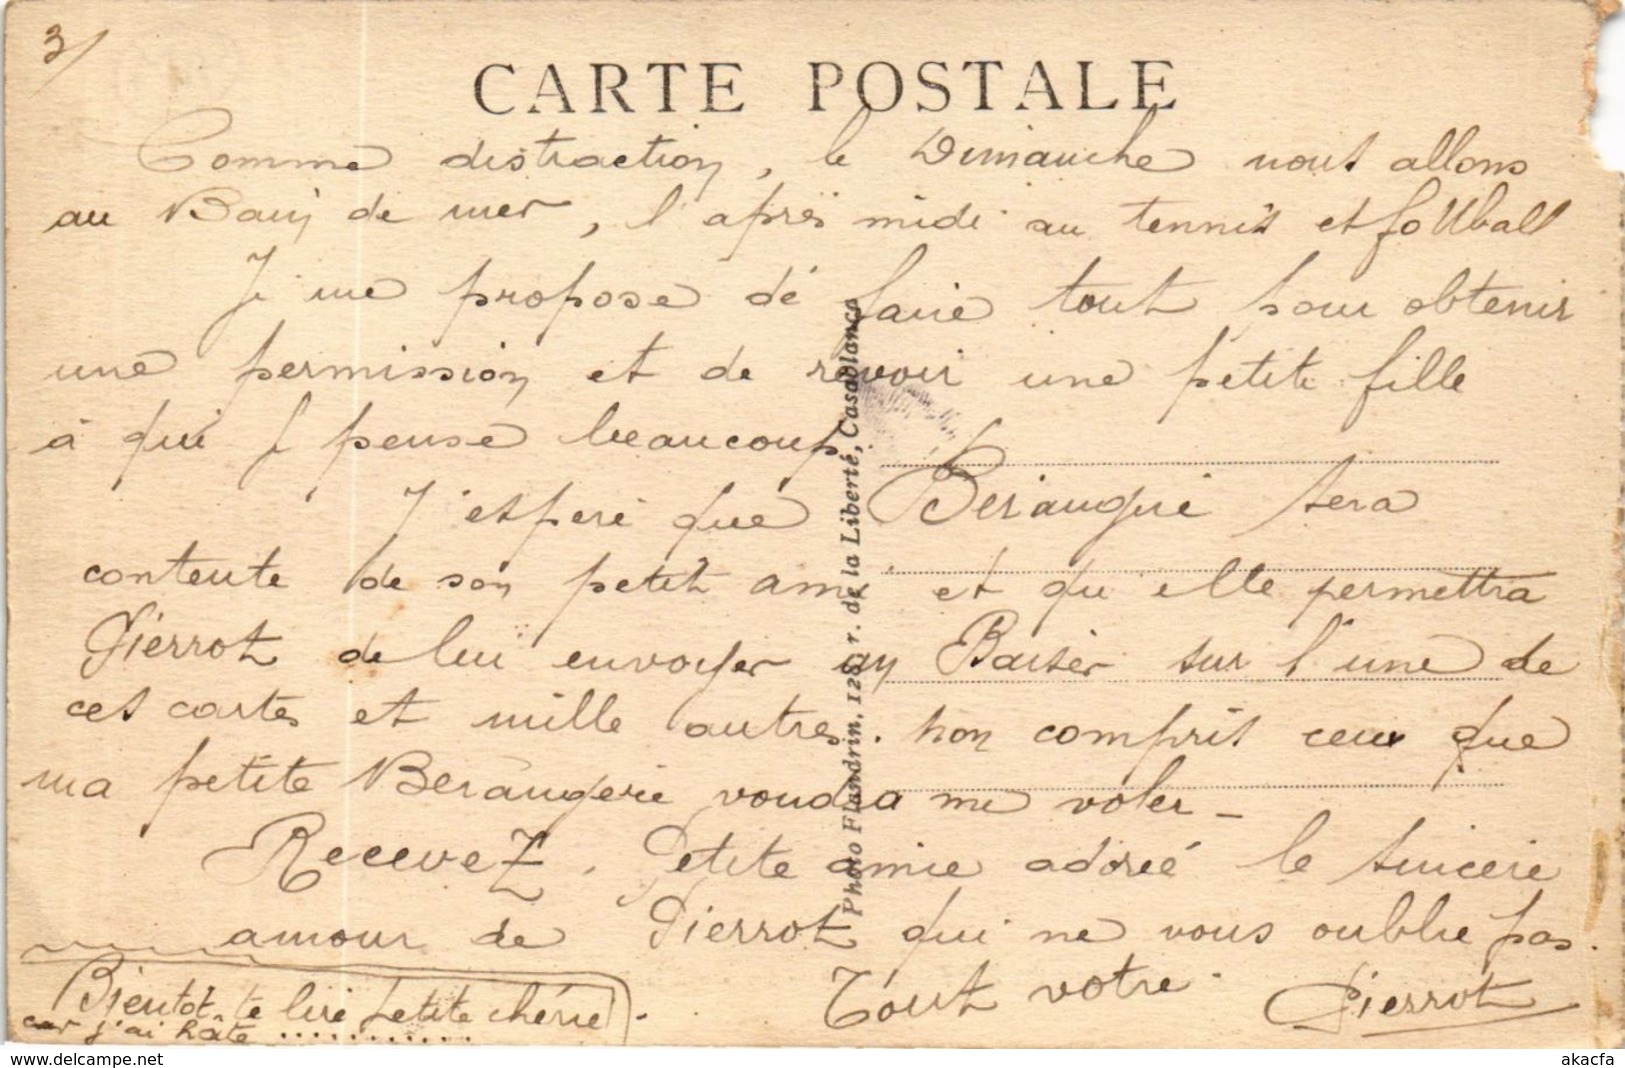 3/
CARTE POSTALE
Comme distraction, le Dimanche nous allons
au Bain de mer, l'après midi au tennis et football
Je me propose de faire tout pour obtenir
une permission et de revoir une petite fille
à qui je pense beaucoup.
J'espère que Berangère sera
contente de son petit ami et qu'elle permettra
Pierrot de lui envoyer un Baiser sur l'une de
ces cartes et mille autres. non compris ceux que
ma petite Berangerie voudra me voler_
Recevez. Petite amie adorée le sincère
amour de Pierrot qui ne vous oublie pas.
Tout votre.
Pierrot
Bientot te lire petite chérie.
car j'ai hâte ............
Photo Flandrin, 128, r. de la Liberté, Casablanca
akacfa